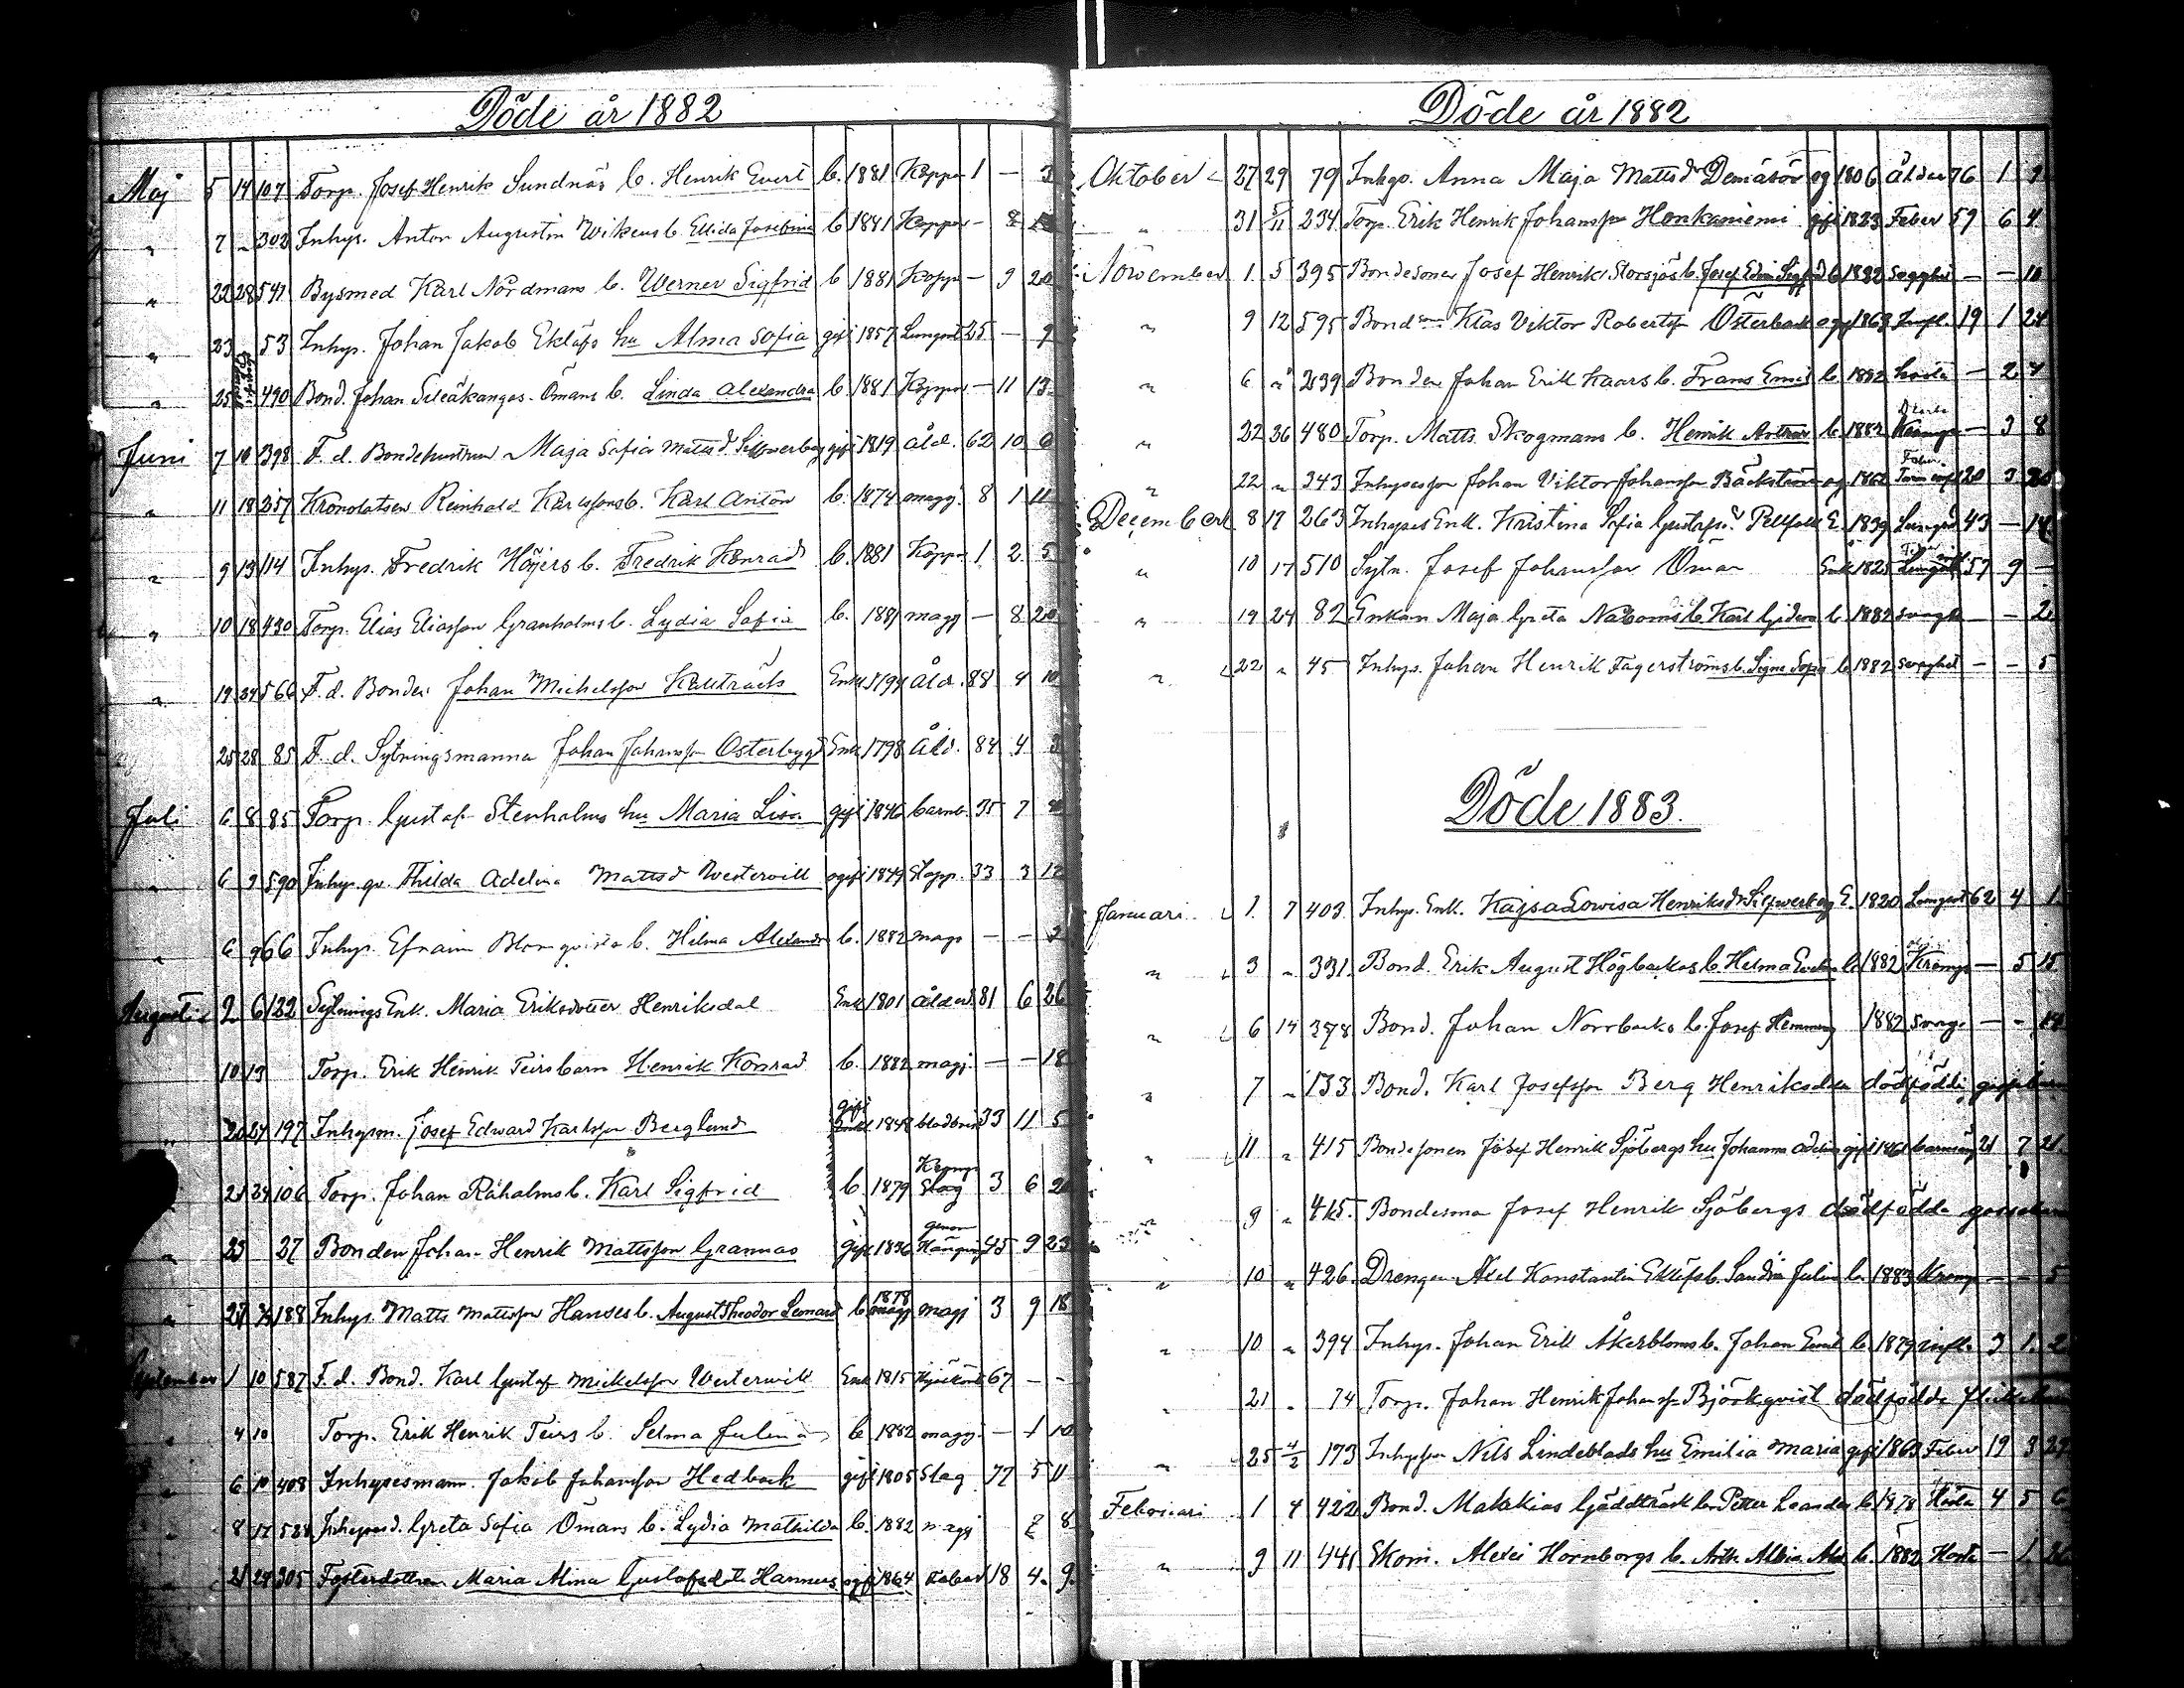 Döde år 1882
Maj 5 14 107 Torp. Josef Henrik Sundnäs b. Henrik Evert b. 1881 Koppor 1 — 3
" 7 " 302 Inhys. Anton Augustin Wikens b. Ellida Josefina b 1881 Koppor — 8
" 22 28 541 Bysmed Karl Nordmans b. Werner Sigfrid b 1881 Koppr — 9 20
" 23 53 Inhys. Johan Jakob Eklöfs hu Alma Sofia gift 1857 Lungsot 25 — 9
" 25 490 Bond. Johan Ömans b. Linda Alexandra b. 1881 Koppor — 11 13
Juni 7 10 398 F. d. Bondehustrun Maja Sofia Mattsd gift 1819 åld. 62 10 0
" 11 18 257 Reinhold Karlssons b. Karl Anton b. 1874 magj. 8 1 11
" 9 13 114 Inhys. Fredrik Höijers b. Fredrik Konrad b. 1881 Koppr 1 2 5
" 10 18 430 Torp. Elias Eliasson Granholms b. Lydia Sofia b. 1881 magj — 8 20
" 19 24 566 F. d. Bonden Johan Michelsson Källträsk Enkl 1794 åld. 88 4 10
25 28 85 F. d. Sytningsmannen Johan Johansson Österbygd Enk 1798 åld. 84 4 3
Juli 6 8 85 Torp. Gustaf Stenholms hu Maria Lisa gift 1846 barnb. 35 7
" 6 9 590 Inhys. qv. Thilda Adelina Mattsd Westerwik ogift 1849 33 3 12
" 6 9 66 Inhys. Efraim Blomqvists b. Hilma Alexandra b. 1882 mags — — 2
Augusti 2 6 122 Sytnings Enk. Maria Eriksdotter Henriksdal Enk 1801 ålderd. 81 6 26
10 13 Torp. Erik Henrik Teirs barn Henrik Konrad b. 1882 magj. — — 18
" 20 27 197 Inhysm. Josef Edward Karlsson Berglund gift 1848 33 11 5
21 24 106 Torp. Johan Råholms b. Karl Sigfrid b 1879 Kramp Slag 3 6 20
" 23 27 Bonden Johan Henrik Mattsson Grannas gift 1836 genom Hängning 45 9 23
" 27 188 Inhys. Matts Mattsson Hanses b. August Theodor Leonard b 1878 magj 3 9 18
September 1 10 587 F. d. Bond. Karl Gustaf Mickelsson Westerwik Enk 1815 67 — —
4 10 Torp. Erik Henrik Teirs b. Selma Julina b 1882 magj. — 1 10
6 10 408 Inhysesmann. Jakob Johansson Hedback gift 1805 Slag 77 5 11
8 17 Greta Sofia Ömans b. Lydia Mathilda b. 1882 magj 2 8
21 24 305 Fosterdottren Maria Alma Gustafsdott. Hannus ogift 1864 18 4 9
Döde år 1882
Oktober 27 29 79 Inhys. Anna Maja Mattsdr og 1806 ålder 76 1 9
" 31 5/11 234 Torp. Erik Henrik Johansson Honkaniemi gift 1823 Feber 59 6 4
November 1 5 395 Bondesonen Josef Henrik Storsjös b. Josef Edvin Sigfrid b 1882 svaghet — — 10
" 9 12 595 Bondson Klas Viktor Robertsson Österback og 1863 19 1 24
" 6 " 239 Bonden Johan Erik Kaars b. Frans Emil b 1882 hosta — 2 4
" 22 26 480 Torp. Matts Skogmans b. Henrik Arthur b 1882 — 3 8
" 22 " 343 Inhysesson Johan Viktor Johansson Bäckström og 1862 20 3 20
December 8 17 263 Inhyses Enk. Kristina Sofia Gustafsd Pellfolk E 1839 Lungsot 43 — 14
" 10 17 510 Sytn. Josef Johansson Öman Enk 1825 57 9 —
" 19 24 82 Enkan Maja Greta Nabooms b. Karl Gideon b 1882 svagh — — 2
" 22 " 45 Inhys. Johan Henrik Fagerströms b. Signe Sofia b 1882 svaghet — — 5
Döde 1883.
Januari 1 7 403 Inhys. Enk. Kajsa Lowisa Henriksdr Silfwerberg E. 1820 Lungsot 62 4 1
" 3 " 331 Bond. Erik August Högbackas b. Helma b 1882 Kramp — 5 15
" 6 14 378 Bond. Johan Norrbacks b. Josef Hemming 1882 svagh — — 14
" 7 " 133 Bond. Karl Josefsson Berg Henriksdals dödfödda gossebarn
" 11 " 415 Bondesonen Josef Henrik Sjöbergs hu Johanna Adelina gift 1861 barnsäng 21 7 21
" 9 " 415. Bondesonen Josef Henrik Sjöbergs dödfödda gossebarn
" 10 " 426. Drengen Axel Konstantin Eklöfs b. Sandra Julina b. 1883 Kramp — — 5
" 10 " 394 Inhys. Johan Erik Åkerbloms b. Johan Emil b. 1879 infl. 3 1 2
" 21 " 74 Torp. Johan Henrik Johansson Björkqvist dödfödda flickebarn
" 25 4/2 173 Inhysson Nils Lindeblads hu Emilia Maria gift 1863 Feber 19 3 29
Februari 1 4 422 Bond. Malakias Gäddträsk b. Petter Leander b 1878 Hosta 4 5 6
" 9 11 441 Skom. Alexis Hornborgs b. b. 1882 Hosta — 1 26